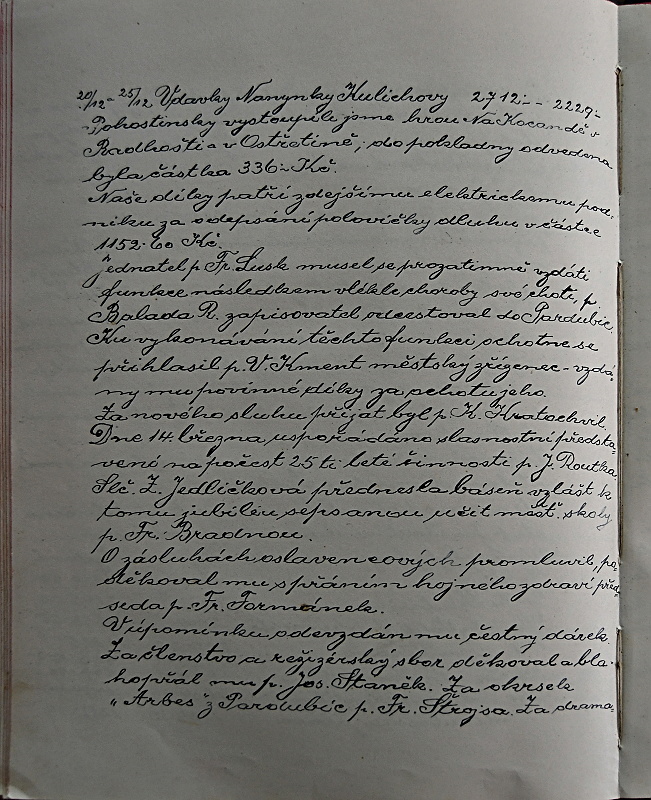 20/12 - 25/12 Vdavky Nanynky Kulichovy 2712·-- 2229·-
Pohostinsky vystoupili jsme hrou Na Kocandě v
Radhošti a v Ostřetíně, do pokladny odvedena
byla částka 336·- Kč.
Naše díky patří zdejšímu elektrickemu pod-
niku za odepsání polovičky dluhu v částce
1152·60 Kč.
Jednatel p. Fr. Lusk musel se prozatimně vzdáti
funkce následkem vleklé choroby své choti, p.
Balada R. zapisovatel odcestoval do Pardubic.
Ku vykonávání těchto funkcí ochotne se
přihlasil p. V. Kment městský zřízenec - vzdá-
ny mu povinné díky za ochotu jeho.
Za nového sluhu přijat byl p. K. Kratochvil.
Dne 14. března uspořádáno slavnostní předsta-
vení na počest 25 ti leté činnosti p. J. Routka.
Slč. Z. Jedličková přednesla báseň vzlášť k
tomu jubileu sepsanou učit. měšť. školy
p. Fr. Bradnou.
O zásluhách oslavencových promluvil, po-
děkoval mu s přáním hojného zdraví před-
seda p. Fr. Formánek.
V úpomínku odevzdán mu čestný dárek.
Za členstvo a režizérský sbor děkoval a bla-
hopřál mu p. Jos. Staněk. Za okrsek
„Arbes" z Pardubic p. Fr. Štrojsa. Za drama-